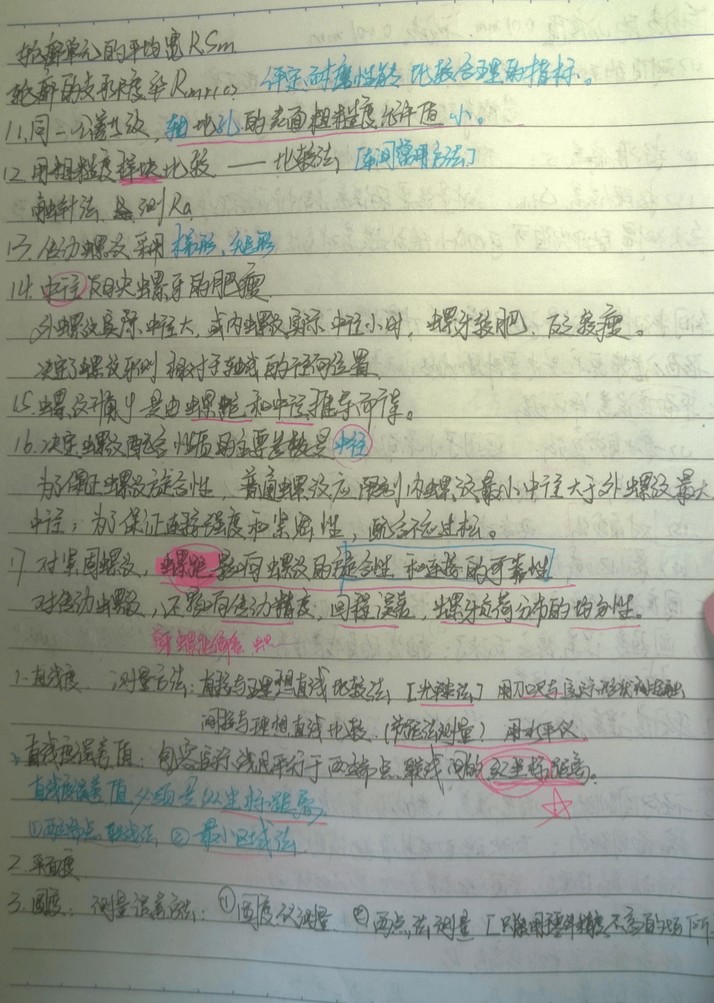 轮廓单元的平均宽RSm
轮廓的支承长度率Rmr(c)? 评定耐磨性能 比较合理的指标。
11.同一公差等级,轴比孔的表面粗糙度允许值 小。
12.用粗糙度样块比较 —— 比较法,[车间常用方法]
触针法, 测Ra
13.传动螺纹采用梯形,矩形
14.中径决螺牙的肥瘦
外螺纹实际中径大,或内螺纹实际中径小时,螺牙较肥,反之较瘦。
决定了螺纹牙侧相对于轴线的径向位置
15.螺纹升角ψ是由螺距和中径推导而得。
16.决定螺纹配合性质的主要参数是中径
为了保证螺纹旋合性,普通螺纹应限制内螺纹最小中径大于外螺纹最大
中径;为了保证连接强度和紧密性,配合不应过松。
17 对紧固螺纹,螺距影响螺纹的旋合性和连接的可靠性
对传动螺纹,还影响传动精度,回程误差,螺牙负荷分布的均匀性。
1.直线度. 测量方法:直接与理想直线比较法,[光隙法] 用刀口尺与实际形状相接触
间接与理想直线比较.(节距法测量) 用水平仪
直线度误差值:包容实际线且平行于两端点联线间的纵坐标距离。
直线度误差值必须是纵坐标距离
①两端点联线法 ②最小区域法
2.平面度
3.圆度: 测量误差方法:①圆度仪测量 ②两点法测量 [只能用于精度不高的场所